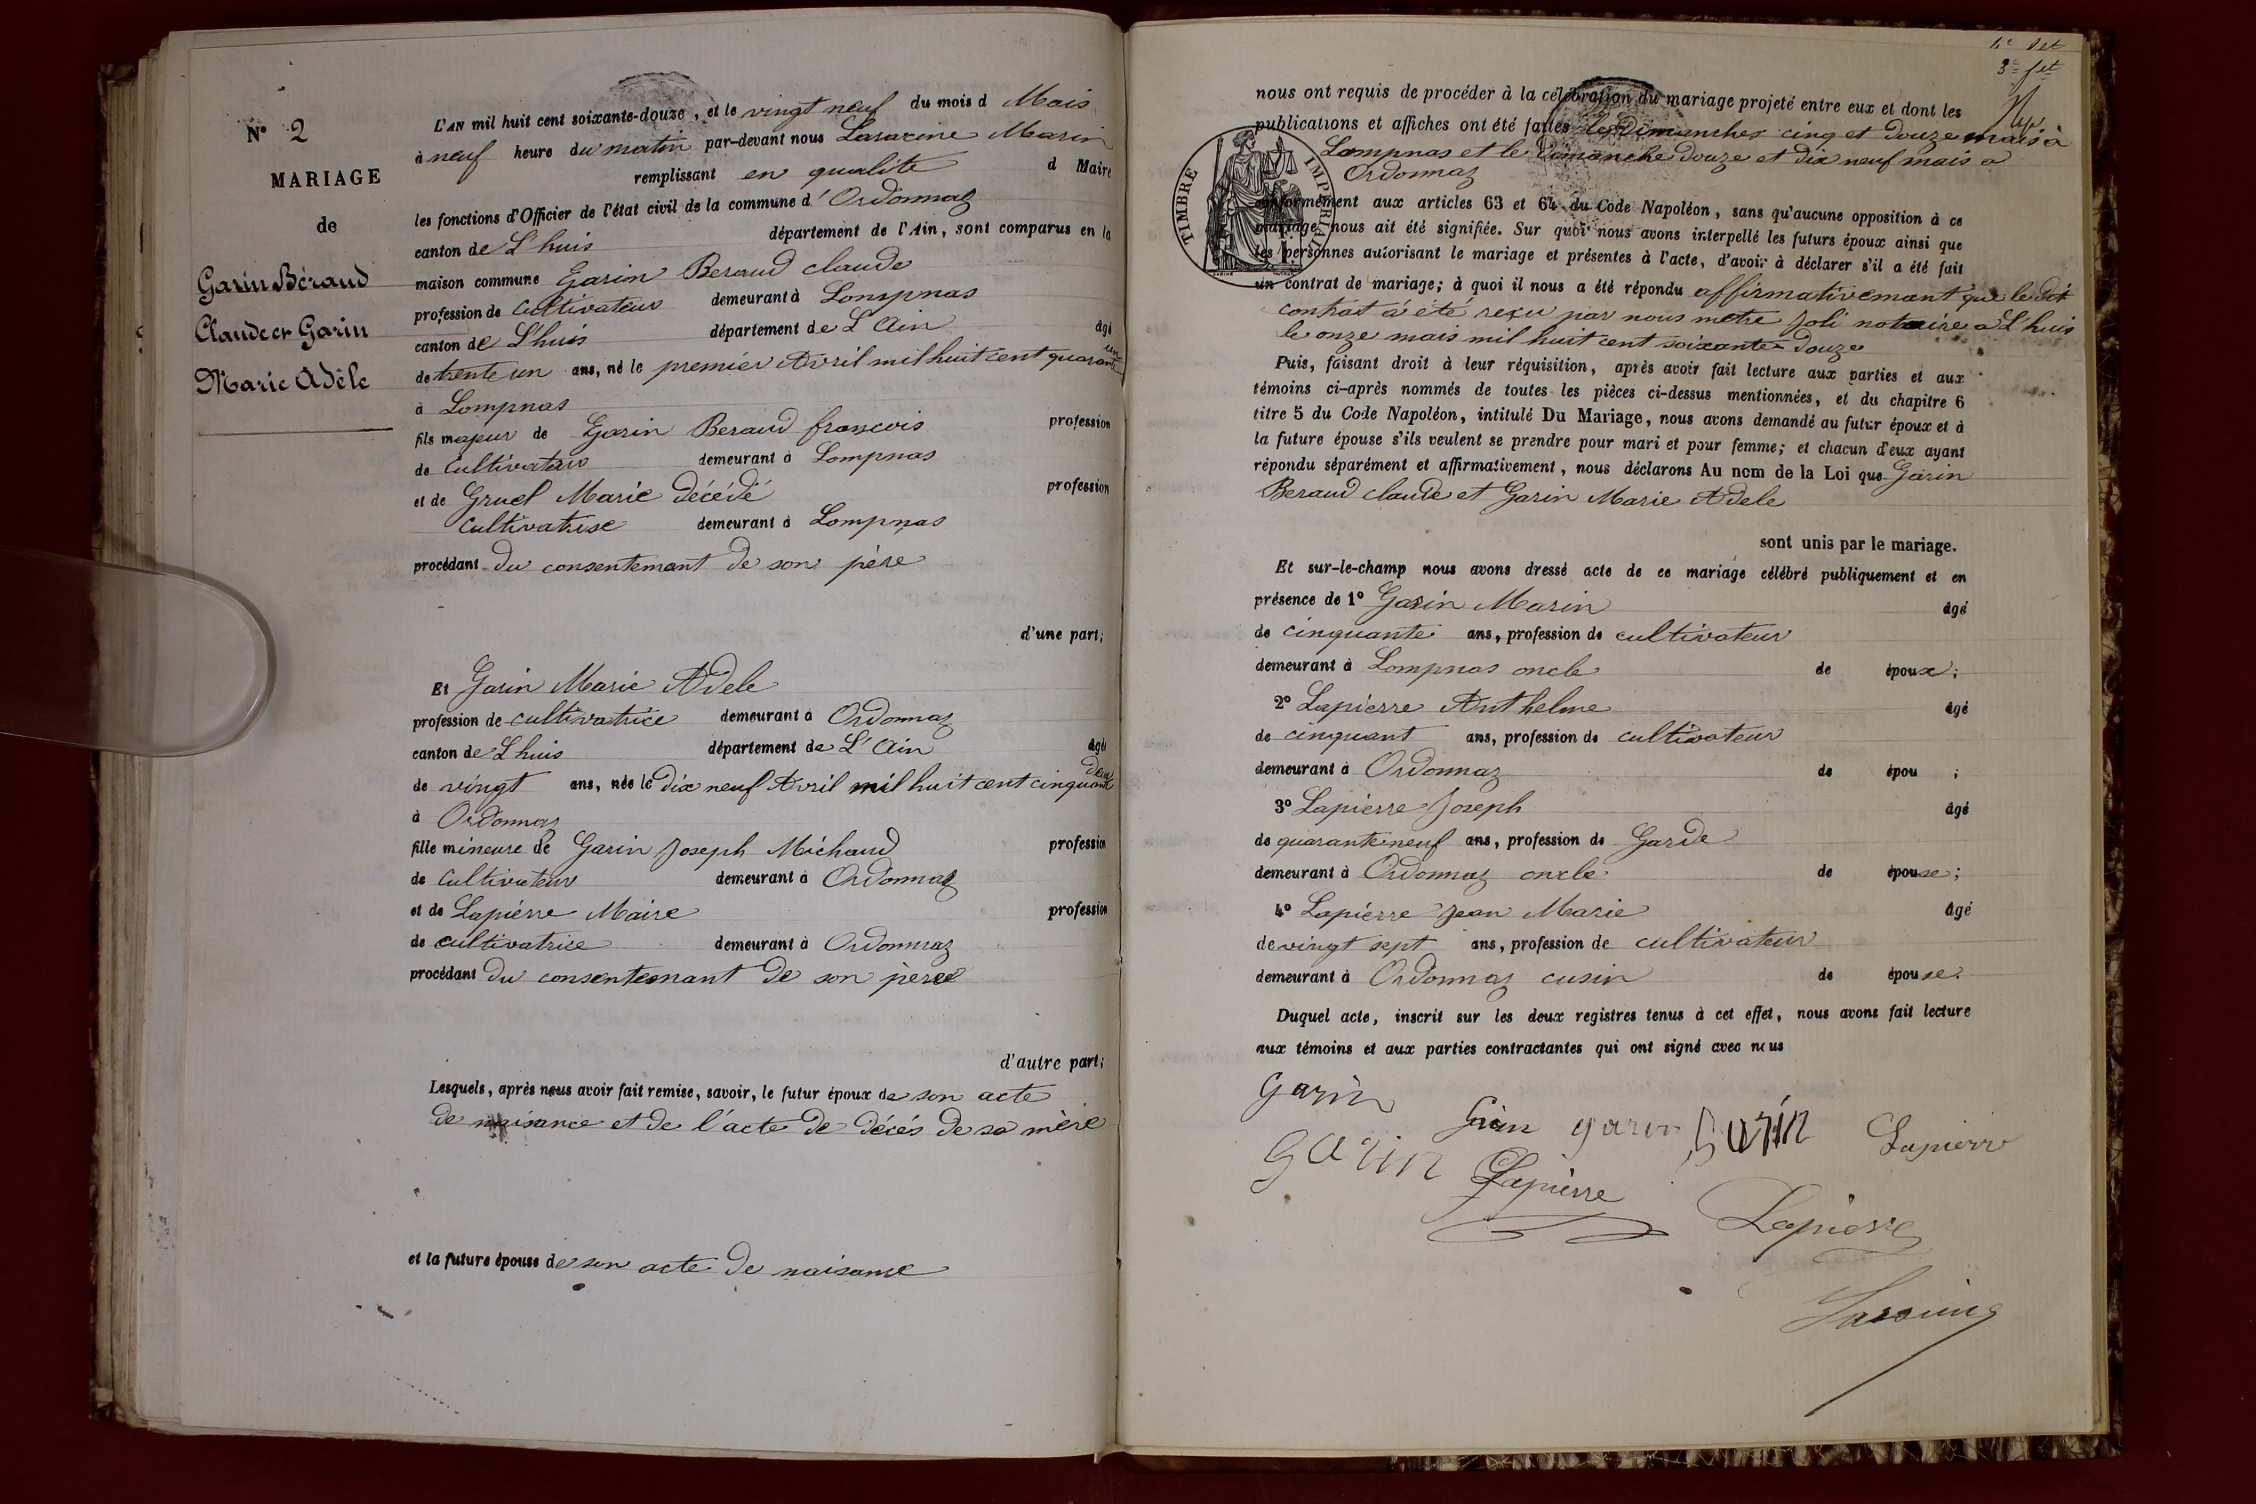 N° 2
MARIAGE
de
Garin Béraud
Claude et Garin
Marie Adèle
L'AN mil huit cent soixante-douze, et le vingt neuf du mois d Mais
à neuf heure du matin par-devant nous Sarazine Marin
remplissant en qualité d Maire
les fonctions d'Officier de l'état civil de la commune d'Ordonnaz
canton de L'huis département de l'Ain, sont comparus en la
maison commune Garin Beraud claude
profession de cultivateur demeurant à Lompnas
canton de L'huis département de L'Ain âgé
de trente un ans, né le premier Avril mil huit cent quarante un
à Lompnas
fils majeur de Garin Beraud françois profession
de cultivateur demeurant à Lompnas
et de Gruel Marie décédé profession
cultivatrise demeurant à Lompnas
procédant du consentemant de son père
d'une part;
Et Garin Marie Adele
profession de cultivatrice demeurant à Ordonnaz
canton de L'huis département de L'Ain âgé
de vingt ans, née le dix neuf Avril mil huit cent cinquante deux
à Ordonnaz
fille mineure de Garin Joseph Michaud profession
de cultivateur demeurant à Ordonnaz
et de Lapierre Maire profession
de cultivatrice demeurant à Ordonnaz
procédant du consentemant de son père
d'autre part;
Lesquels, après nous avoir fait remise, savoir, le futur époux de son acte
de naisance et de l'acte de décés de sa mère
et la future épouse de son acte de naisance
3e
nous ont requis de procéder à la célébration du mariage projeté entre eux et dont les
publications et affiches ont été faites les Dimanches cinq et douze mais à
Lompnas et le Dimanche douze et dix neuf mais a
Ordonnaz
TIMBRE IMPERIAL
conformément aux articles 63 et 64 du Code Napoléon, sans qu'aucune opposition à ce
mariage nous ait été signifiée. Sur quoi nous avons interpellé les futurs époux ainsi que
les personnes autorisant le mariage et présentes à l'acte, d'avoir à déclarer s'il a été fait
un contrat de mariage; à quoi il nous a été répondu affirmativemant que le dit
contrat à été reçu par nous metre Joli notaire a L'huis
le onze mais mil huit cent soixante douze
Puis, faisant droit à leur réquisition, après avoir fait lecture aux parties et aux
témoins ci-après nommés de toutes les pièces ci-dessus mentionnées, et du chapitre 6
titre 5 du Code Napoléon, intitulé Du Mariage, nous avons demandé au futur époux et à
la future épouse s'ils veulent se prendre pour mari et pour femme; et chacun d'eux ayant
répondu séparément et affirmativement, nous déclarons Au nom de la Loi que Garin
Beraud claude et Garin Marie Adele
sont unis par le mariage.
Et sur-le-champ nous avons dressé acte de ce mariage célébré publiquement et en
présence de 1° Garin Marin âgé
de cinquante ans, profession de cultivateur
demeurant à Lompnas oncle de époux;
2° Lapierre Anthelme âgé
de cinquant ans, profession de cultivateur
demeurant à Ordonnaz de épou ;
3° Lapierre Joseph âgé
de quarante neuf ans, profession de Garde
demeurant à Ordonnaz oncle de épouse;
4° Lapierre Jean Marie âgé
de vingt sept ans, profession de cultivateur
demeurant à Ordonnaz cusin de épouse.
Duquel acte, inscrit sur les deux registres tenus à cet effet, nous avons fait lecture
aux témoins et aux parties contractantes qui ont signé avec nous
Garin
garin Garin Lapierre
Garin Lapierre
Lapierre